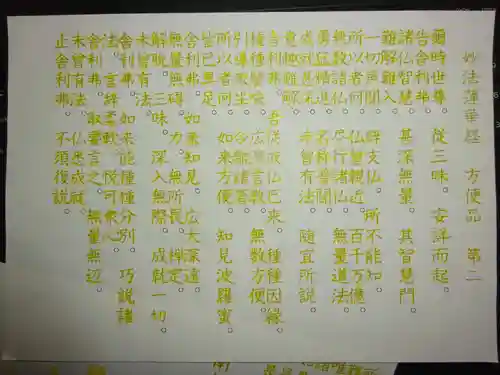 妙法蓮華経 方便品 第二
爾時世尊 從三昧 安詳而起。
告舎利弗
諸仏智慧 甚深無量 其智慧門
難解難入
一切声聞 辟支仏 所不能知
所以者何 仏曾親近 百千万億
無数諸仏 尽行諸仏 無量道法
勇猛精進 名称普聞
成就甚深 未曾有法 隨宜所説
意趣難解
舎利弗 吾從成仏已来 種種因縁
種種譬喩 広演言教 無数方便
引導衆生 令離諸著
所以者何 如来方便 知見波羅蜜
皆已具足
舎利弗 如来知見 広大深遠
無量無碍 力 無所畏 禅定
解脱三昧 深入無際 成就一切
未曾有法
舎利弗 如来能種種分別 巧説諸
法 言辞柔軟 悦可衆心
舎利弗 取要言之 無量無辺
未曾有法 仏悉成就
止舎利弗 不須復説